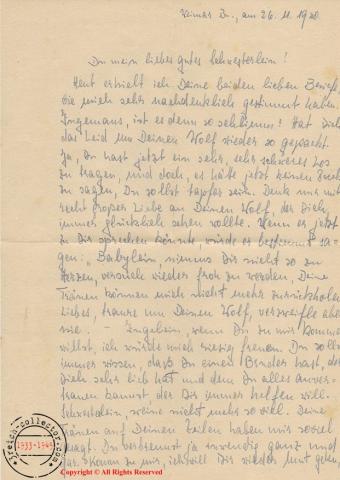 Weimar Bu., am 26. 11. 1940
Du mein liebes gutes Schwesterlein!
Heut erhielt ich Deine beiden lieben Briefe,
die mich sehr nachdenklich gestimmt haben.
ist es denn so schlimm? Hat Dich
das Leid um Deinen Wolf wieder so gepackt.
Ja, Du hast jetzt ein sehr, sehr schweres Los
zu tragen, und doch, es hätte jetzt keinen Zweck
zu sagen, Du sollst tapfer sein. Denk nur mit
recht großer Liebe an Deinen Wolf, der Dich
immer glücklich sehen wollte. Wenn er jetzt
zu Dir sprechen könnte würde er bestimmt sa-
gen: "Babylein, nimms Dir nicht so zu
Herzen, versuch wieder froh zu werden, Deine
Tränen können mich nicht mehr zurückholen
Liebes, traure um Deinen Wolf, verzweifle aber
nie. - Ingelein, wenn Du zu mir kommen
willst, ich würde mich riesig freuen. Du sollst
immer wissen, daß Du einen Bruder hast, der
Dich sehr lieb hat und dem Du alles anver-
trauen kannst, der Dir immer helfen will.
Schwesterlein, weine nicht mehr so viel. Deine
Tränen auf Deinen Zeilen haben mir soviel
gesagt. Du verbrennst ja inwendig ganz und
gar. Komm zu mir, ich will Dir wieder Mut geben,
1933-1945
reich-collector.com
Copyright © All Rights Reserved